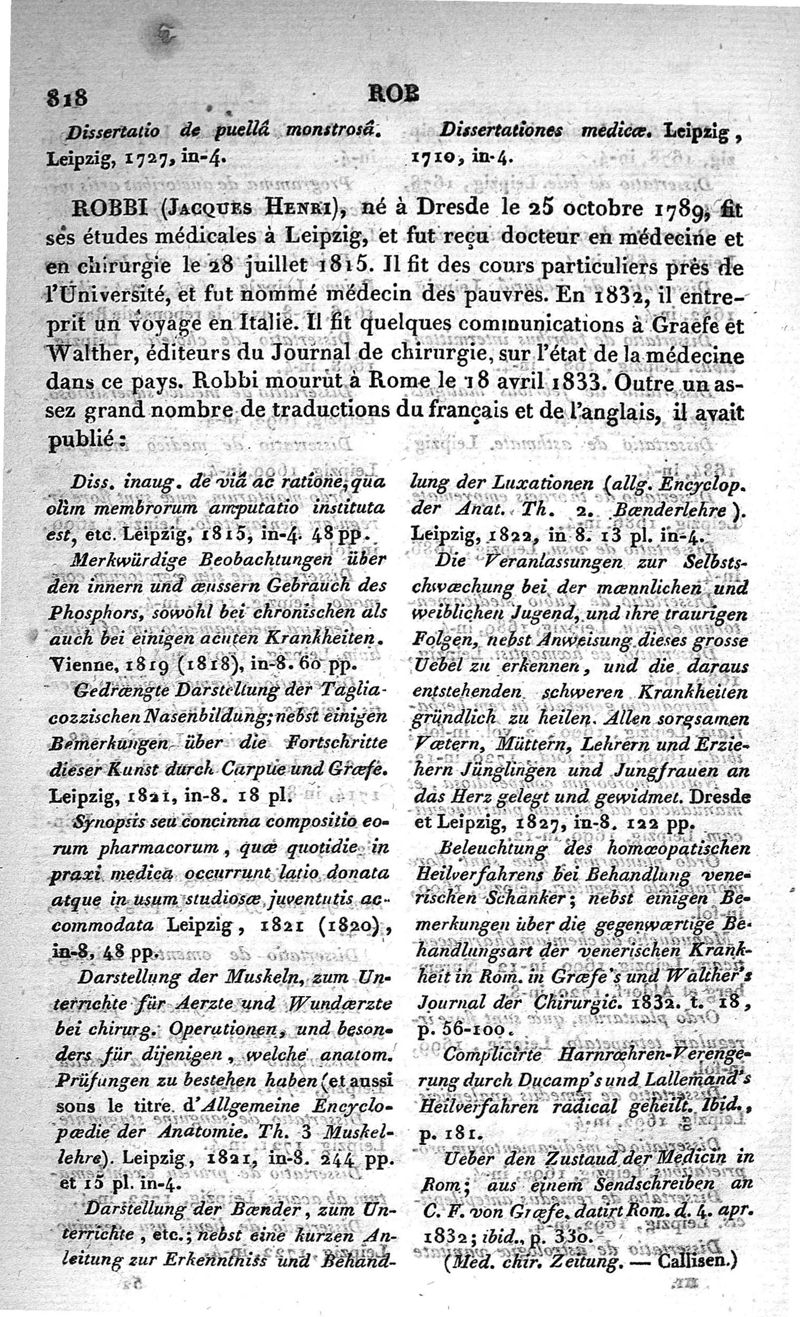 818
ROB
Dissertatio de puellâ monstrosâ.
Leipzig, 1727, in-4.
Dissertationes medicæ. Leipzig,
1710, in-4.
ROBBI (Jacques Henri), né à Dresde le 25 octobre 1789, fit
ses études médicales à Leipzig, et fut reçu docteur en médecine et
en chirurgie le 28 juillet 1815. Il fit des cours particuliers près de
l'Université, et fut nommé médecin des pauvres. En 1832, il entre-
prit un voyage en Italie. Il fit quelques communications à Graefe et
Walther, éditeurs du Journal de chirurgie, sur l'état de la médecine
dans ce pays. Robbi mourut à Rome le 18 avril 1833. Outre un as-
sez grand nombre de traductions du français et de l'anglais, il avait
publié :
Diss. inaug. de viâ ac ratione, qua
olim membrorum amputatio instituta
est, etc. Leipzig, 1815, in-4. 48 pp.
Merkwürdige Beobachtungen über
den innern und æussern Gebrauch des
Phosphors, sowohl bei chronischen als
auch bei einigen acuten Krankheiten.
Vienne, 1819 (1818), in-8. 60 pp.
Gedrængte Darstellung der Taglia-
cozzischen Nasenbildung; nebst einigen
Bemerkungen über die Fortschritte
dieser Kunst durch Carpue und Græfe.
Leipzig, 1821, in-8. 18 pl.
Synopsis seu concinna compositio eo-
rum pharmacorum, quæ quotidie in
praxi medica occurrunt latio donata
atque in usum studiosæ juventutis ac-
commodata Leipzig, 1821 (1820),
in-8, 48 pp.
Darstellung der Muskeln, zum Un-
terrichte für Aerzte und Wundærzte
bei chirurg. Operationen, und beson-
ders für dijenigen, welche anatom.
Prüfungen zu bestehen haben (et aussi
sous le titre d'Allgemeine Encyclo-
pædie der Anatomie. Th. 3 Muskel-
lehre). Leipzig, 1821, in-8. 244 pp.
et 15 pl. in-4.
Darstellung der Bænder, zum Un-
terrichte, etc.; nebst eine kurzen An-
leitung zur Erkenntniss und Behand-
lung der Luxationen (allg. Encyclop.
der Anat. Th. 2. Bænderlehre).
Leipzig, 1822, in 8. 13 pl. in-4.
Die Veranlassungen zur Selbsts-
chwæchung bei der mænnlichen und
weiblichen Jugend, und ihre traurigen
Folgen, nebst Anweisung dieses grosse
Uebel zu erkennen, und die daraus
entstehenden schweren Krankheiten
gründlich zu heilen. Allen sorgsamen
Vætern, Müttern, Lehrern und Erzie-
hern Jünglingen und Jungfrauen an
das Herz gelegt und gewidmet. Dresde
et Leipzig, 1827, in-8. 122 pp.
Beleuchtung des homœopatischen
Heilverfahrens bei Behandlung vene-
rischen Schanker; nebst einigen Be-
merkungen über die gegenwærtige Be-
handlungsart der venerischen Krank-
heit in Rom. in Græfe's und Walther's
Journal der Chirurgie. 1832. t. 18,
p. 56-100.
Complicirte Harnrœhren-Verenge-
rung durch Ducamp's und Lallemand's
Heilverfahren radical geheilt. Ibid.,
p. 181.
Ueber den Zustaud der Medicin in
Rom; aus einem Sendschreiben an
C. F. von Græfe. datirt Rom. d. 4. apr.
1832; ibid., p. 330.
(Med. chir. Zeitung. — Callisen.)